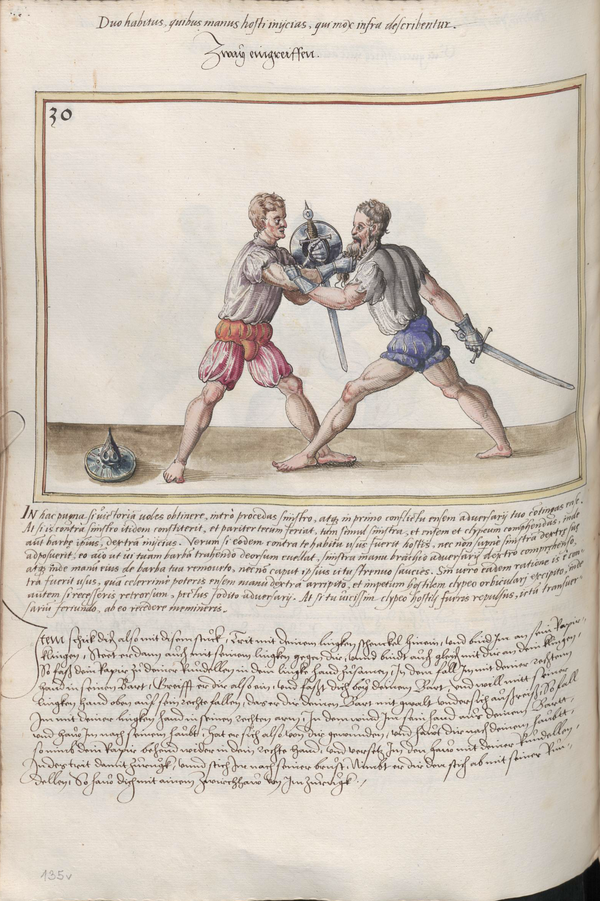 Duo habitus, quibus manus hosti inijcias, qui mox infra describentur.
Zwaÿ eingreiffen.
30
IN hac pugna si victoria voles obtinere, intrò procedas sinistro, atq; in primo ensem adversarij tuo cōtingas ense.
At si is contrà sinistro itidem constiterit, et pariter tecum feriat, tum simul sinistra, et ensem et clypeum comprehendas, inde
aut barbę ipsius, dextrā inijcias. Verum si eodem contra te habitu usus fuerit hostis, nec non sinistrā
adposuerit, eo acsi ut is tuam barbā trahendo deorsum euellat, sinistra manu brachio adversarij dextro comprehenso,
atq; inde manū eius de barba tua remoueto, necnō caput ipsius ictu strenuo saucies. Sin vero eadem ratione is cōn-
trā fuerit usus, quā celerrimè poteris ensem manu dextrā arripito, et impetum hostilem clypeo orbiculari excipito, inde
autem si recesseris retrorsum, pectus fodito adversarij. At si tu vicissim clypeo hostis fueris repulsus, ictū transuer-
sariū feriundo, ab eo recedere memineris.
Item schick dich also mit disem stuck, Trit mit deinem lingken schenckel hinein, und bind Im an sein Rapier
klingen, Steet er dann auch mit seinem lingken gegen dir, und bindt auch gleich mit dir an den klingen,
So fass dein Rapir zu deiner Rundellen in dein lingke hand zusamen, In dem fall Im mit deiner rechten
hand in seinen Bart, Greifft er dir also ein, und fasst dich bey deinem Bart, und will mit seiner
lingken hand oben auf sein rechte fallen, das er dir deinen Bart mit gwalt undersich aussreiss, So fall
Im mit deiner lingken hand in seinen rechten arm, In dem wind Im sein hand aus deinem Barta
und haw Im nach seinem haubt, hat er sich also von dir gewunden, und hawt dir nach deinem haubt,
so nimb dein Rapier behend wider in dein rechte hand, und versetz Im den haw mit deiner Rundellen,
Indes trit damit zuruck, und stich Im nach seiner brust, Nimbt er dir den stich ab mit seiner Run-
dellen, So haw dich mit ainem zwerchhaw von Im zuruck.
135v